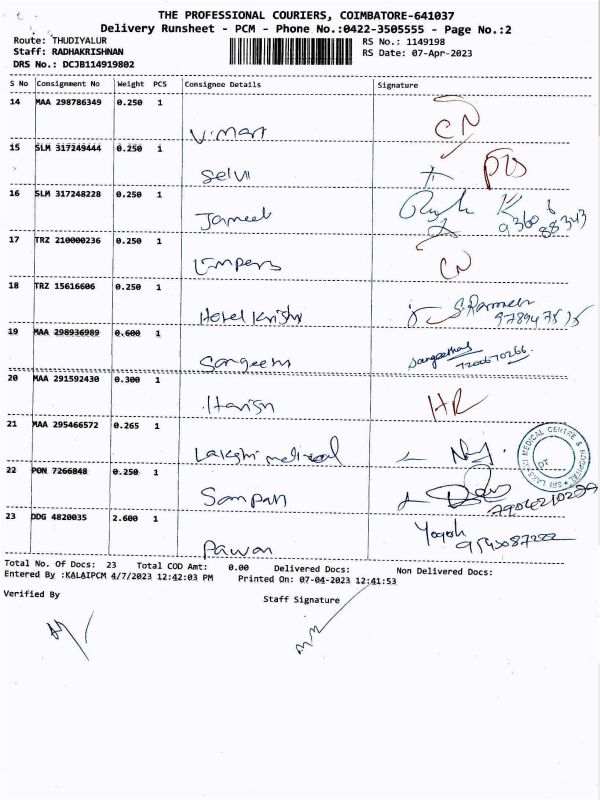 THE PROFESSIONAL COURIERS, COIMBATORE-641037
Delivery Runsheet - PCM - Phone No.:0422-3505555 - Page No.:2
Route: THUDIYALUR
RS No.: 1149198
Staff: RADHAKRISHNAN
RS Date: 07-Apr-2023
DRS No.: DCJB114919802
S No Consignment No Weight PCS Consignee Details Signature
14 MAA 298786349 0.250 1
V.Mart CN
15 SLM 317249444 0.250 1
Selvi
16 SLM 317248228 0.250 1
Jameel
17 TRZ 210000236 0.250 1
CN
18 TRZ 15616606 0.250 1
Hotel Krishn
19 MAA 298936989 0.600 1
Sangeeth
7200670266
20 MAA 291592430 0.300 1
Harish HR
21 MAA 295466572 0.265 1
Lakshmi medical
SRI LAKSHMI MEDICAL CENTRE & HOSPITAL
22 PON 7266848 0.250 1
Sampath
23 DDG 4820035 2.600 1
Pawan Yogesh
Total No. Of Docs: 23 Total COD Amt: 0.00 Delivered Docs: Non Delivered Docs:
Entered By :KALAIPCM 4/7/2023 12:42:03 PM Printed On: 07-04-2023 12:41:53
Verified By
Staff Signature